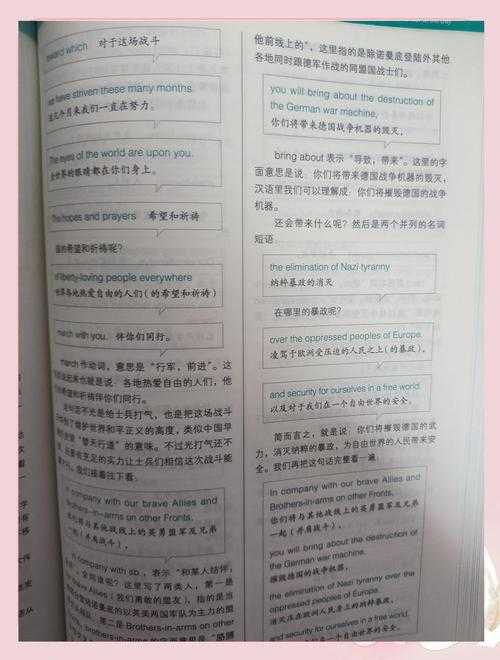 toward which 对于这场战斗
we have striven these many months.
这几个月来我们一直在努力。
The eyes of the world are upon you.
全世界的眼睛都在你们身上。
The hopes and prayers 希望和祈祷
谁的希望和祈祷呢?
of liberty-loving people everywhere
世界各地热爱自由的人们(的希望和祈祷)
march with you. 伴你们同行。
march 作动词,意思是“行军,前进”。这
也就是说:各地热爱自由的人们,他
希望和祈祷伴你们同行。
这句话不光是给士兵打气,也是把这场战斗
维护世界和平正义的高度,类似中国早
“替天行道”的意味。不过光打气还不
充足的实力让士兵们相信这次战斗能
我们接着往下看。
In company with our brave Allies and
Brothers-in-arms on other Fronts,
和其他战线上的英勇盟军及兄弟
一起(并肩战斗),
in company with sb., 表示“和某人结伴,
会同谁呢?这里写了两类人,第一是
brave Allies(我们勇敢的盟友),指的是当
诺曼底的以英美两国军队为主力的盟
第二是 Brothers-in-arms on other
他前线上的”,这里指的是除诺曼底登陆外其他
各地同时跟德军作战的同盟国战士们。
you will bring about the destruction of
the German war machine,
你们将带来德国战争机器的毁灭,
bring about 表示“导致,带来”。这里的字
面意思是说:你们将带来德国战争机器的毁灭,
汉语里我们可以理解成:你们将摧毁德国的战争
机器。
还会带来什么呢?然后是两个并列的名词
短语:
the elimination of Nazi tyranny
纳粹暴政的消灭
在哪里的暴政呢?
over the oppressed peoples of Europe,
凌驾于欧洲受压迫的人民之上(的暴政),
and security for ourselves in a free world.
以及对于我们在一个自由世界的安全。
简而言之,就是说:你们将摧毁德国的武
力,消灭纳粹的暴政,为自由世界的人民带来安
全。我们再把这句话完整看一遍:
In company with our brave Allies and
Brothers-in-arms on other Fronts,
你们将与其他战线上的英勇盟军及兄弟
一起(并肩战斗),
you will bring about the destruction of
the German war machine,
摧毁德国的战争机器,
the elimination of Nazi tyranny over the
oppressed peoples of Europe,
消灭在欧洲人民身上的纳粹暴政,
and security for ourselves in a free world.
一个自由世界的安全。